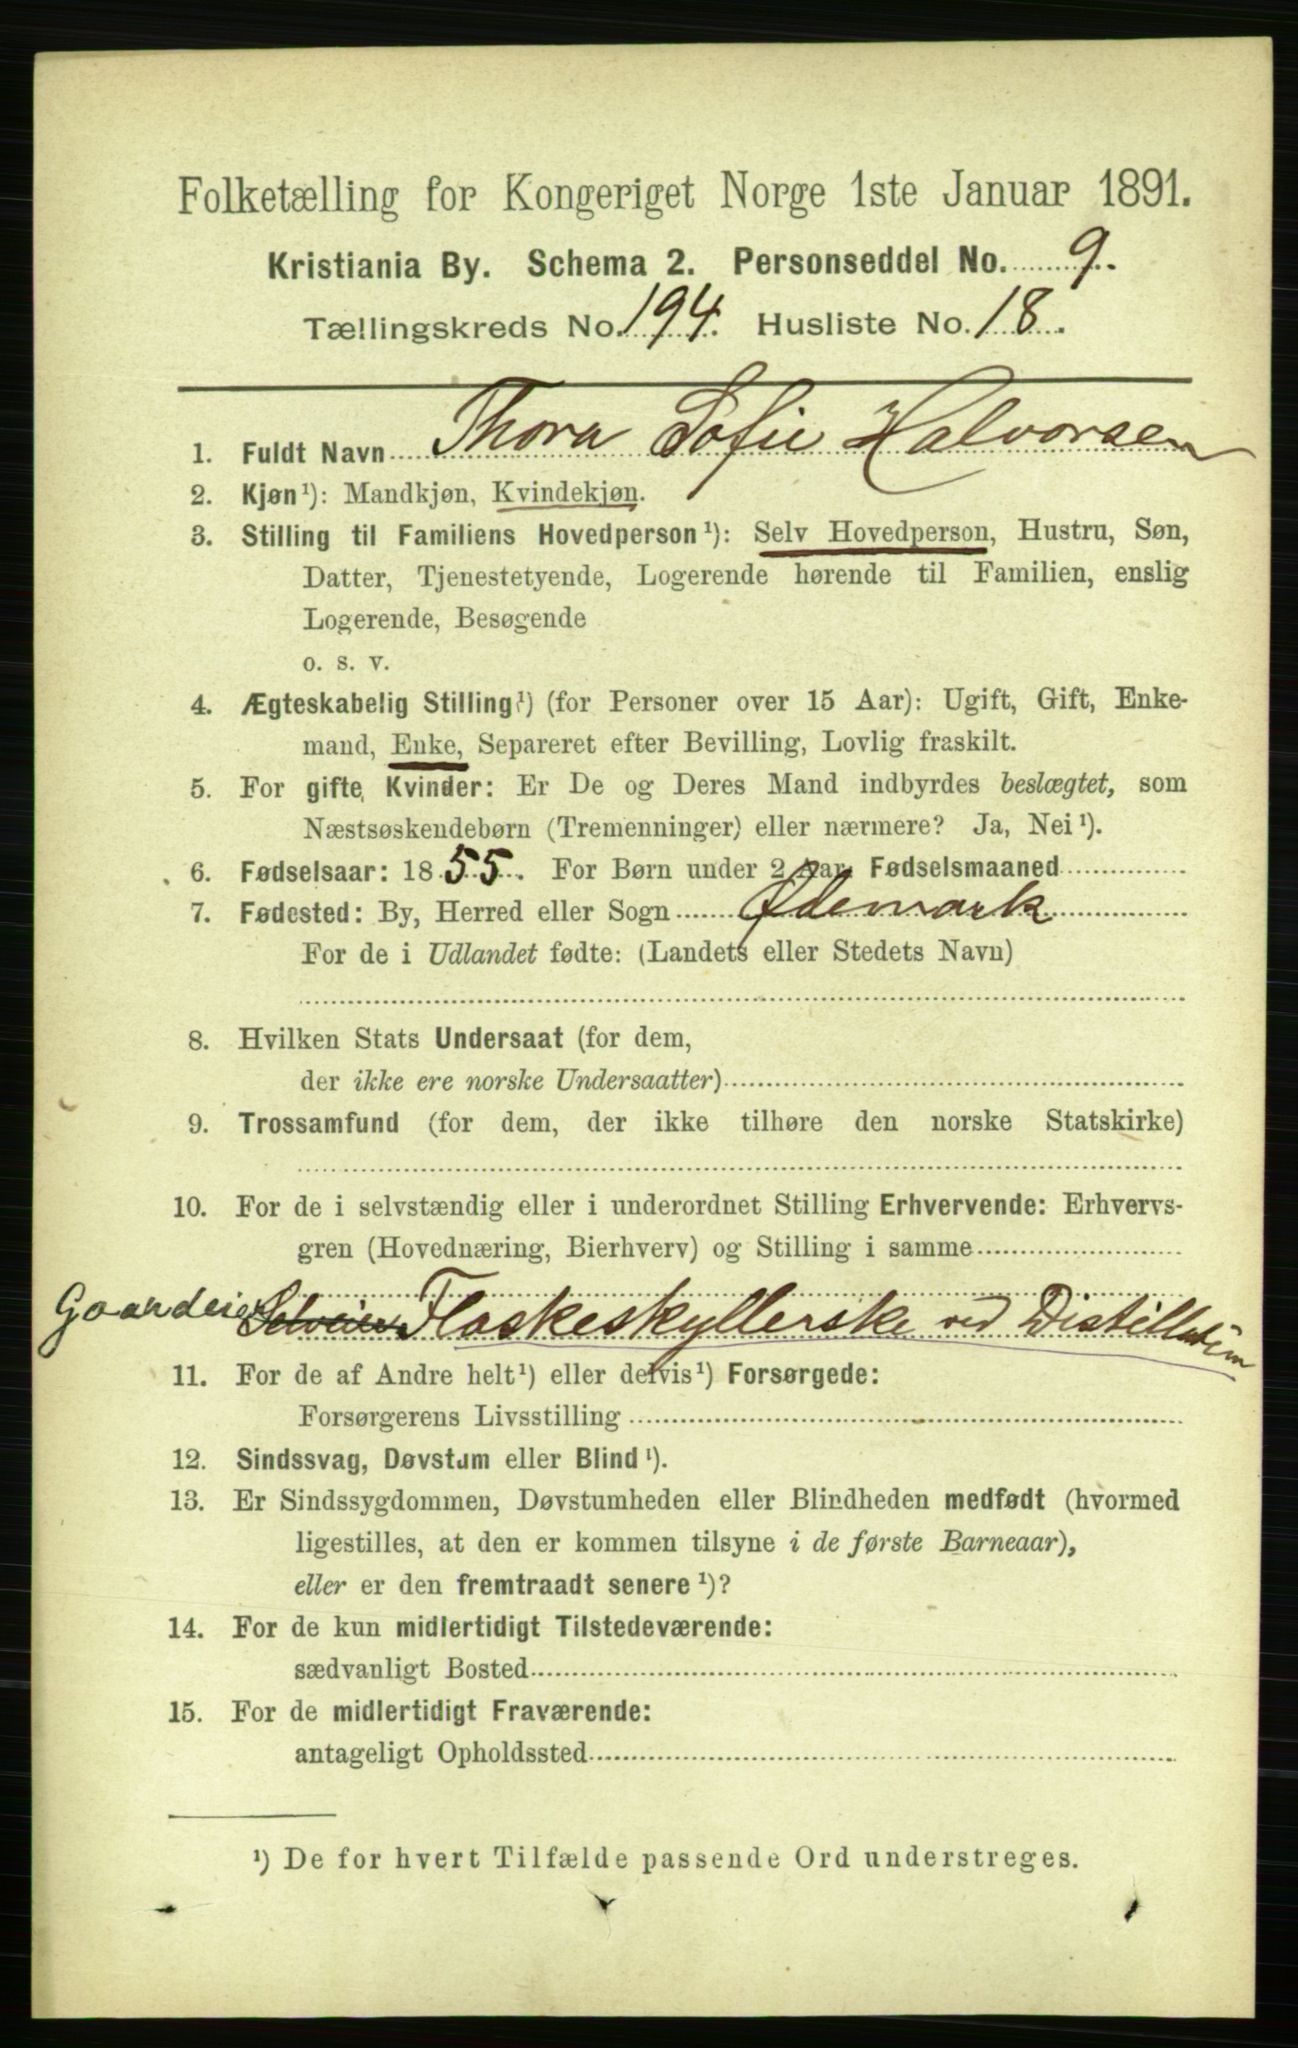 Folketælling for Kongeriget Norge 1ste Januar 1891.
Kristiania By. Schema 2. Personseddel No. 9.
Tællingskreds No. 194. Husliste No. 18.
1. Fuldt Navn Thora Sofie Halvorsen
2. Kjøn¹): Mandkjøn, Kvindekjøn.
3. Stilling til Familiens Hovedperson¹): Selv Hovedperson, Hustru, Søn,
Datter, Tjenestetyende, Logerende hørende til Familien, enslig
Logerende, Besøgende
o. s. v.
4. Ægteskabelig Stilling¹) (for Personer over 15 Aar): Ugift, Gift, Enke-
mand, Enke, Separeret efter Bevilling, Lovlig fraskilt.
5. For gifte Kvinder: Er De og Deres Mand indbyrdes beslægtet, som
Næstsøskendebørn (Tremenninger) eller nærmere? Ja, Nei¹).
6. Fødselsaar: 1855. For Børn under 2 Aar, Fødselsmaaned
7. Fødested: By, Herred eller Sogn Ødemark
For de i Udlandet fødte: (Landets eller Stedets Navn)
8. Hvilken Stats Undersaat (for dem,
der ikke ere norske Undersaatter)
9. Trossamfund (for dem, der ikke tilhøre den norske Statskirke)
10. For de i selvstændig eller i underordnet Stilling Erhvervende: Erhvervs-
gren (Hovednæring, Bierhverv) og Stilling i samme
Gaardeier Selveier Flaskeskyllerske ved Distillation
11. For de af Andre helt¹) eller delvis¹) Forsørgede:
Forsørgerens Livsstilling
12. Sindssvag, Døvstum eller Blind¹).
13. Er Sindssygdommen, Døvstumheden eller Blindheden medfødt (hvormed
ligestilles, at den er kommen tilsyne i de første Barneaar),
eller er den fremtraadt senere¹)?
14. For de kun midlertidigt Tilstedeværende:
sædvanligt Bosted
15. For de midlertidigt Fraværende:
antageligt Opholdssted
¹) De for hvert Tilfælde passende Ord understreges.